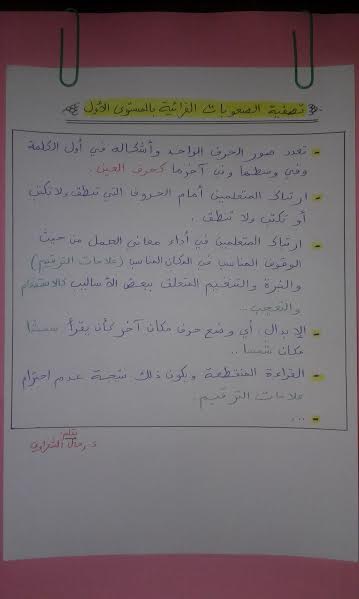 تصفية الصعوبات القرائية بالمستوى الأول
- تعدد صور الحرف الواحد وأشكاله في أول الكلمة
وفي وسطها وفي آخرها كحرف العين.
- ارتباك المتعلمين أمام الحروف التي تنطق ولا تكتب
أو تكتب ولا تنطق.
- ارتباك المتعلمين في أداء معاني الجمل من حيث
الوقوف المناسب في المكان المناسب (علامات الترقيم)
والنبرة والتنغيم المتعلق ببعض الأساليب كالاستفهام
والتعجب...
- الإبدال، أي وضع حرف مكان آخر كأن يقرأ سمشا
مكان شمسا..
- القراءة المتقطعة ويكون ذلك نتيجة عدم احترام
علامات الترقيم.
- ...
بقلم: